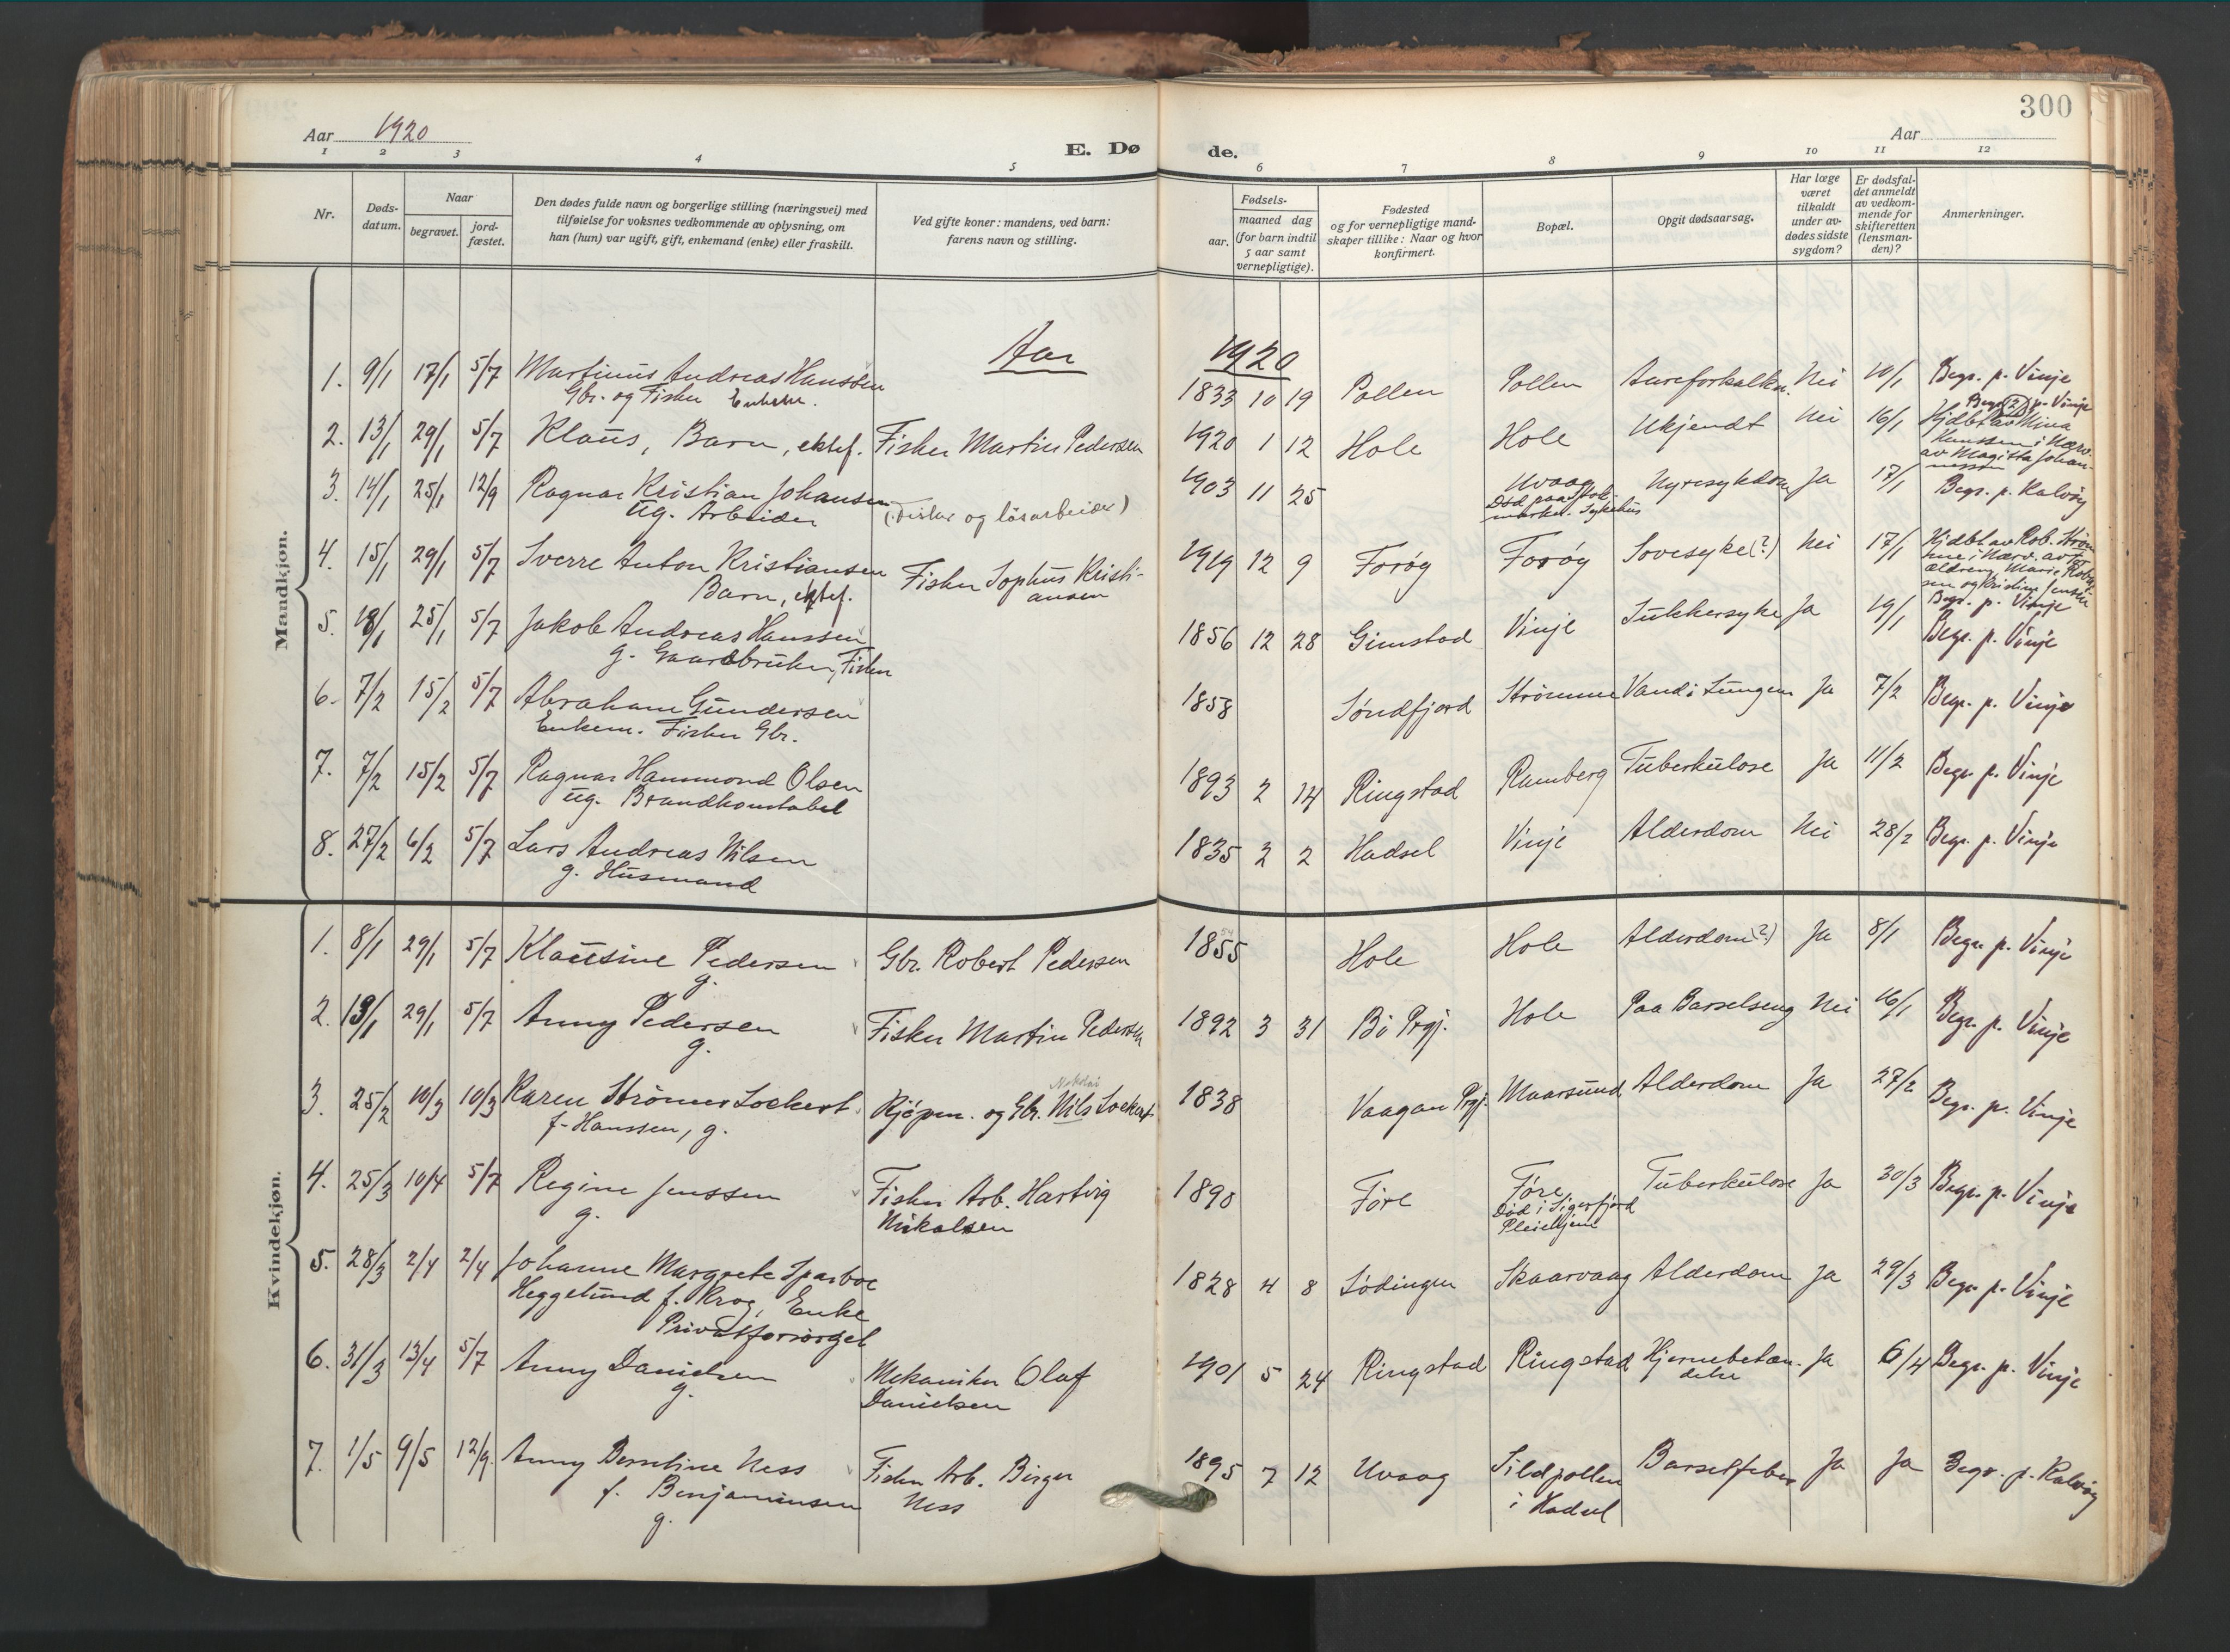 300
Aar 1920
E. Dø
de.
Aar
1 2 3 4 5 6 7 8 9 10 11 12
Nr.
Døds-
datum.
Naar
begravet.
jord-
fæstet.
Den dødes fulde navn og borgerlige stilling (næringsvei) med
tilføielse for voksnes vedkommende av oplysning, om
han (hun) var ugift, gift, enkemand (enke) eller fraskilt.
Ved gifte koner: mandens, ved barn:
farens navn og stilling.
Fødsels-
aar.
maaned dag
(for barn indtil
5 aar samt
vernepligtige).
Fødested
og for vernepligtige mand-
skaper tillike: Naar og hvor
konfirmert.
Bopæl.
Opgit dødsaarsag.
Har læge
været
tilkaldt
under av-
dødes sidste
sygdom?
Er dødsfal-
det anmeldt
av vedkom-
mende for
skifteretten
(lensman-
den)?
Anmerkninger.
Mandkjøn.
Aar 1920
1. 9/1 17/1 5/7 Martinus Andreas Hanssen 1833 10 19 Pollen Pollen Aareforkalkn. Nei 10/1 Begr. p. Vinje
Gbr. og Fisker Enkem.
2. 13/1 29/1 5/7 Klaus, Barn, ektef. Fisker Martin Pedersen 1920 1 12 Hole Hole Ukjendt Nei 16/1 Begr. (?) p. Vinje
Hjdbt av Mina
Hanssen i Nærv.
av Magitta Johan-
nessen
3. 14/1 25/1 12/9 Ragnar Kristian Johansen 1903 11 25 Uvaag Nyresykdom Ja 17/1 Begr. p. Kalvøy
Ug. Arbeider (Fisker og løsarbeider)
Død paa Stok-
markn. Sykehus
4. 15/1 29/1 5/7 Sverre Anton Kristiansen Fisker Sophus Kristi- 1919 12 9 Forøy Forøy Sovesyke (?) Nei 17/1 Hjdbt av Rob. Strøm
Barn, ektef. ansen
me i Nærv. av For
ældrene, Marie Robert
sen og Kristine Jensen
Begr. p. Vinje
5. 18/1 25/1 5/7 Jakob Andreas Hanssen 1856 12 28 Gimstad Vinje Sukkersyke Ja 19/1 Begr. p. Vinje
g. Gaardbruker, Fisker
6. 7/2 15/2 5/7 Abraham Gundersen 1858 Søndfjord Strømme Vand i Lungen Ja 7/2 Begr. p. Vinje
Enkem. Fisker Gbr.
7. 7/2 15/2 5/7 Ragnar Hammond Olsen 1893 2 14 Ringstad Ramberg Tuberkulose Ja 11/2 Begr. p. Vinje
ug. Brandkonstabel
8. 27/2 6/2 5/7 Lars Andreas Nilsen 1835 2 2 Hadsel Vinje Alderdom Nei 28/2 Begr. p. Vinje
g. Husmand
Kvindekjøn.
1. 8/1 29/1 5/7 Klausine Pedersen Gbr. Robert Pedersen 1855 Hole Hole Alderdom (?) Ja 8/1 Begr. p. Vinje
g.
2. 13/1 29/1 5/7 Anny Pedersen Fisker Martin Pedersen 1892 3 31 Bø Prgj. Hole Paa Barselseng Nei 16/1 Begr. p. Vinje
g.
3. 25/2 10/3 10/3 Karen Strømer Lockert Kjøpm. og Gbr. Nils Lockert 1838 Vaagan Prgj. Maarsund Alderdom Ja 27/2 Begr. p. Vinje
f. Hanssen, g. Nikolai
4. 25/3 10/4 5/7 Regine Jenssen Fisker Arb. Hartvig 1890 Føre Føre Tuberkulose Ja 30/3 Begr. p. Vinje
g. Nikalsen
Død i Sigerfjord
Pleiehjem
5. 28/3 2/4 2/4 Johanne Margrete Sparboe 1828 4 8 Lødingen Skaarvaag Alderdom Ja 29/3 Begr. p. Vinje
Heggelund f. Krog, Enke
Privatforsørget
6. 31/3 13/4 5/7 Anny Danielsen Mekaniker Olaf 1901 5 24 Ringstad Ringstad Hjernebetæn- Ja 6/4 Begr. p. Vinje
g. Danielsen delse
7. 1/5 9/5 12/9 Anny Berntine Ness Fisker Arb. Birger 1895 7 12 Uvaag Sildpollen Barselfeber Ja Ja Begr. p. Kalvøy
f. Benjaminsen Ness i Hadsel
g.